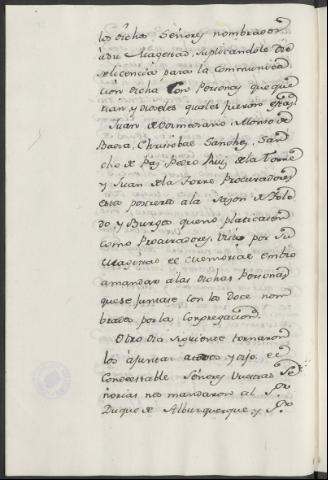 los dichos Señores nombrados
a su Magestad, suplicandole die
se licencia para la Communica
cion dicha con Personas que que
rian, y dioseles quales fueron
Juan de Alonso de
Baeza, Christobal Sanchez, San
cho de Paz, Pedro Ruiz de la Torre
y Juan de la Torre Procuradores
esta postrera a la sazon de Tole
do, y Burgos que no platicaron
como Procuradores, visto por su
Magestad el memorias embio
a mandar a las dichas Personas
que se Juntase con los doce nom
brados por la Congregacion.
Otro dia siguiente tornaron
los a juntar a todos y dijo el
Condestable Señores Vuestras Se
ñorias nos mandaron al Sr.
Duque de Alburquerque, y Sr.